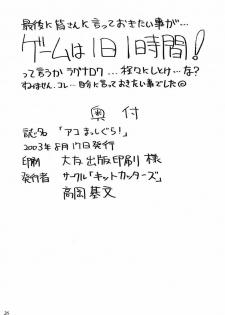 最後に皆さんに言っておきたい事が…
ゲームは1日1時間!
って言うか ラグナロク…程々にしとけ…な?
すみません、コレ…自分に言っておきたい事でした
奥付
誌名 「アコまっしぐら!」
2003年8月17日発行
印刷 大友出版印刷 様
発行者 サークル「キットカッターズ」
高岡基文
26